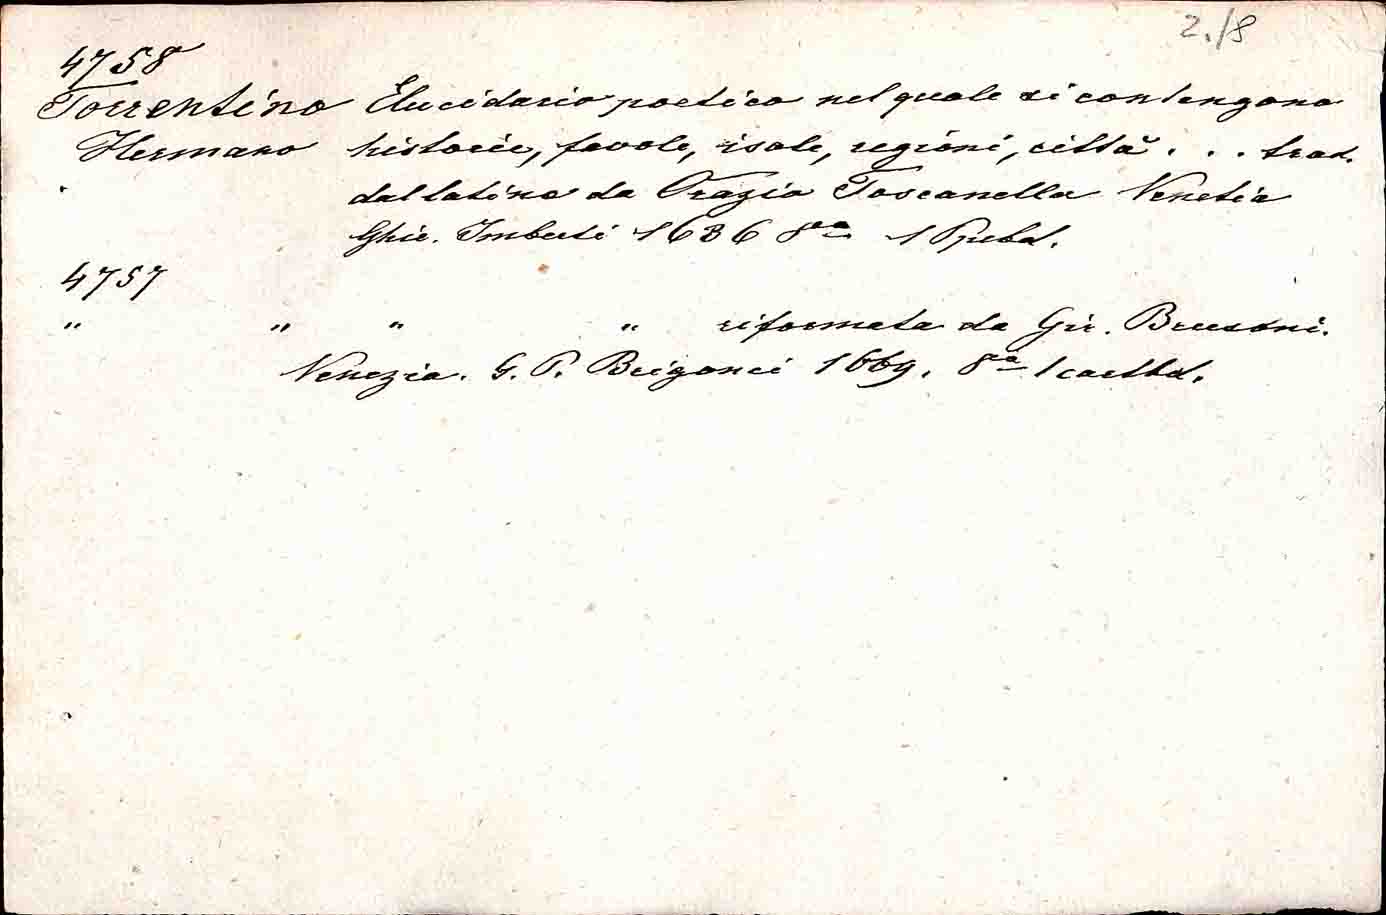 2./8
4758
Torrentino Elucidario poetico nel quale si contengono
Hermano historie, favole, isole, regioni, città . . . trad.
dal latino da Orazio Toscanella Venetia
Ghir. Imberti 1636 8vo 1 Ppbd.
4757
" " " " riformata da Gir. Brusoni.
Venezia. G. P. Brigonci 1669. 8vo 1 cartbd.